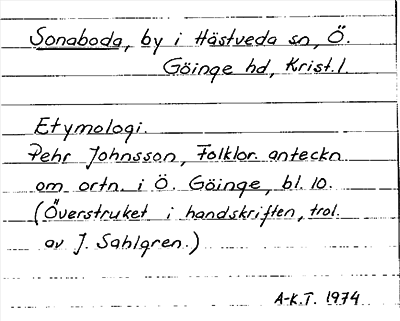 Sonaboda, by i Hästveda sn, Ö.
Göinge hd, Krist. l.
Etymologi.
Pehr Johnsson, Folklor. anteckn.
om ortn. i Ö. Göinge, bl. 10.
(Överstruket i handskriften, trol.
av J. Sahlgren.)
A-K.T. 1974